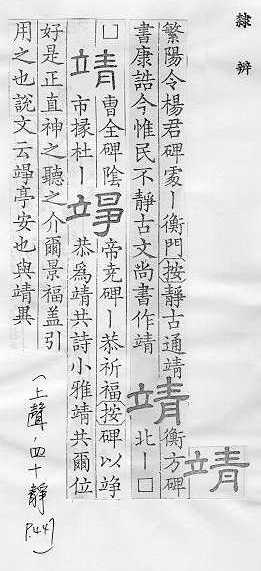 隸辨
靖
繁陽令楊君碑處丨衡門按靜古通靖 衡方碑
書康誥今惟民不靜古文尚書作靖 靖 北丨□
□ 靖 曹全碑陰 竫 帝堯碑丨恭祈福按碑以竫
市掾杜丨 恭爲靖共詩小雅靖共爾位
好是正直神之聽之介爾景福盖引
用之也說文云竫亭安也與靖異
(上聲，四十靜 P.447)